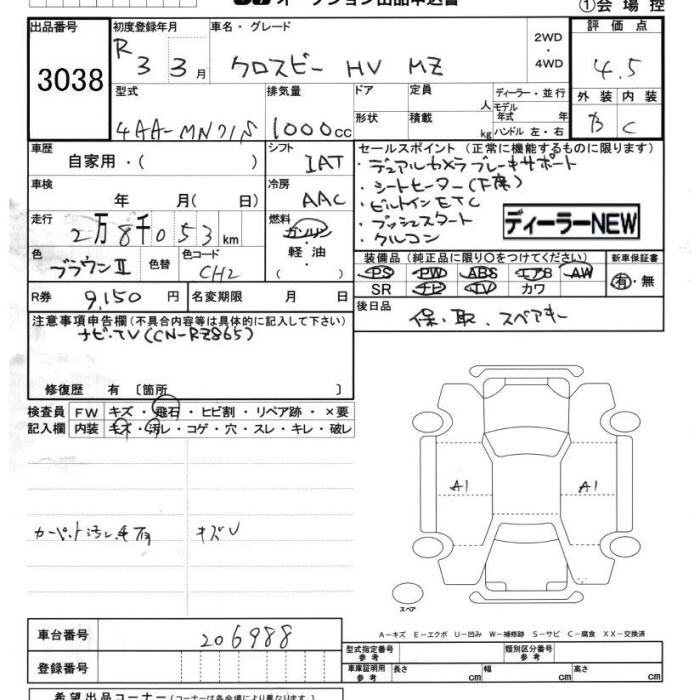 オークション出品申込書
①会場控
出品番号
3038
初度登録年月
R 3 3 月
車名・グレード
クロスビー HV MZ
2WD・4WD
評価点
4.5
外装 内装
B C
型式
4AA-MN71S
排気量
1000cc
ドア
形状
定員 人
積載 kg
ディーラー・並行
モデル年式 年
ハンドル 左・右
車歴
自家用・( )
シフト
IAT
車検
年 月( 日)
冷房
AAC
走行
2万8千053km
燃料
ガソリン
軽油
( )
色
ブラウンⅡ
色替
色コード
CH2
R券
9,150 円
名変期限 月 日
セールスポイント(正常に機能するものに限ります)
・デュアルカメラブレーキサポート
・シートヒーター(下席)
・ビルトインETC
・プッシュスタート
・クルコン
ディーラーNEW
装備品(純正品に限り○をつけてください)
PS PW ABS エアB AW
SR ナビ TV カワ
新車保証書
有・無
後日品
保・取・スペアキー
注意事項申告欄(不具合内容等は具体的に記入して下さい)
ナビ・TV(CN-RZ865)
修復歴 有 〔箇所 〕
検査員記入欄
FW キズ・飛石・ヒビ割・リペア跡・×要
内装 キズ・汚レ・コゲ・穴・スレ・キレ・破レ
カーペット汚レ
キズU
A1
A1
スペア
A-キズ E-エクボ U-凹み W-補修跡 S-サビ C-腐食 XX-交換済
車台番号
206988
登録番号
型式指定番号参考
類別区分番号参考
車庫証明用参考
長さ cm
幅 cm
高さ cm
希望出品コーナー(コーナーは各会場により異なります)